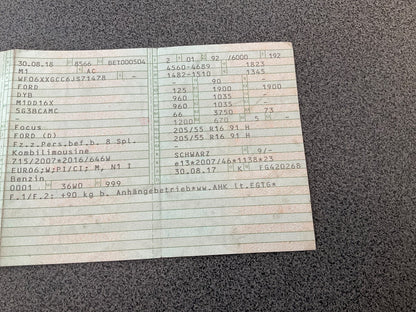 30.08.18 8566 BET000504
M1 AC
WF06XXGCC6J371478 -
FORD
DYB
M1DD16X
5G3BCAMC
-
Focus
FORD (D)
Fz.z.Pers.bef.b. 8 Spl.
Kombilimousine
715/2007*2016/646W
EURO6;W;PI/CI; M, N1 I
Benzin
0001 36W0 999
F.1/F.2: +90 kg b. Anhängebetrieb*ww.AHK lt.EGTG*
2 01 92 /6000 192
4560-4689 1823
1482-1510 1345
- 90 -
125 1900 1900
960 1035 -
960 1035 -
66 3750 73
1200 670 5 -
205/55 R16 91 H
205/55 R16 91 H
-
SCHWARZ 9/-
e13*2007/46*1138*23
30.08.17 K FG420268